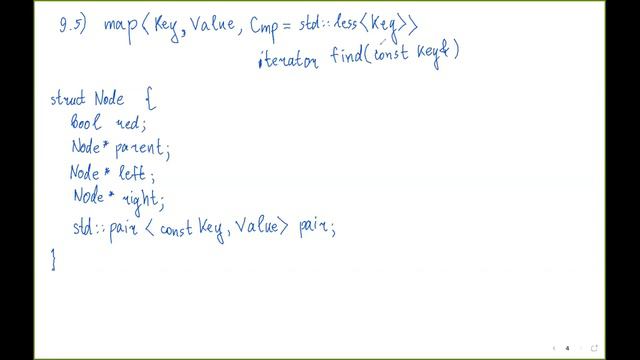 9.5) map<Key, Value, Cmp = std::less<Key>>
iterator find(const Key&)
struct Node {
Bool red;
Node* parent;
Node* left;
Node* right;
std::pair<const Key, Value> pair;
}
4